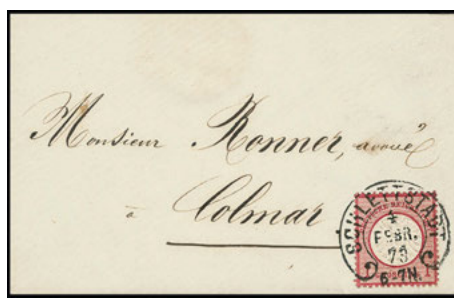 Monsieur Ronner, avoué
à Colmar
SCHLETTSTADT
4
FEBR.
73
6-7N.